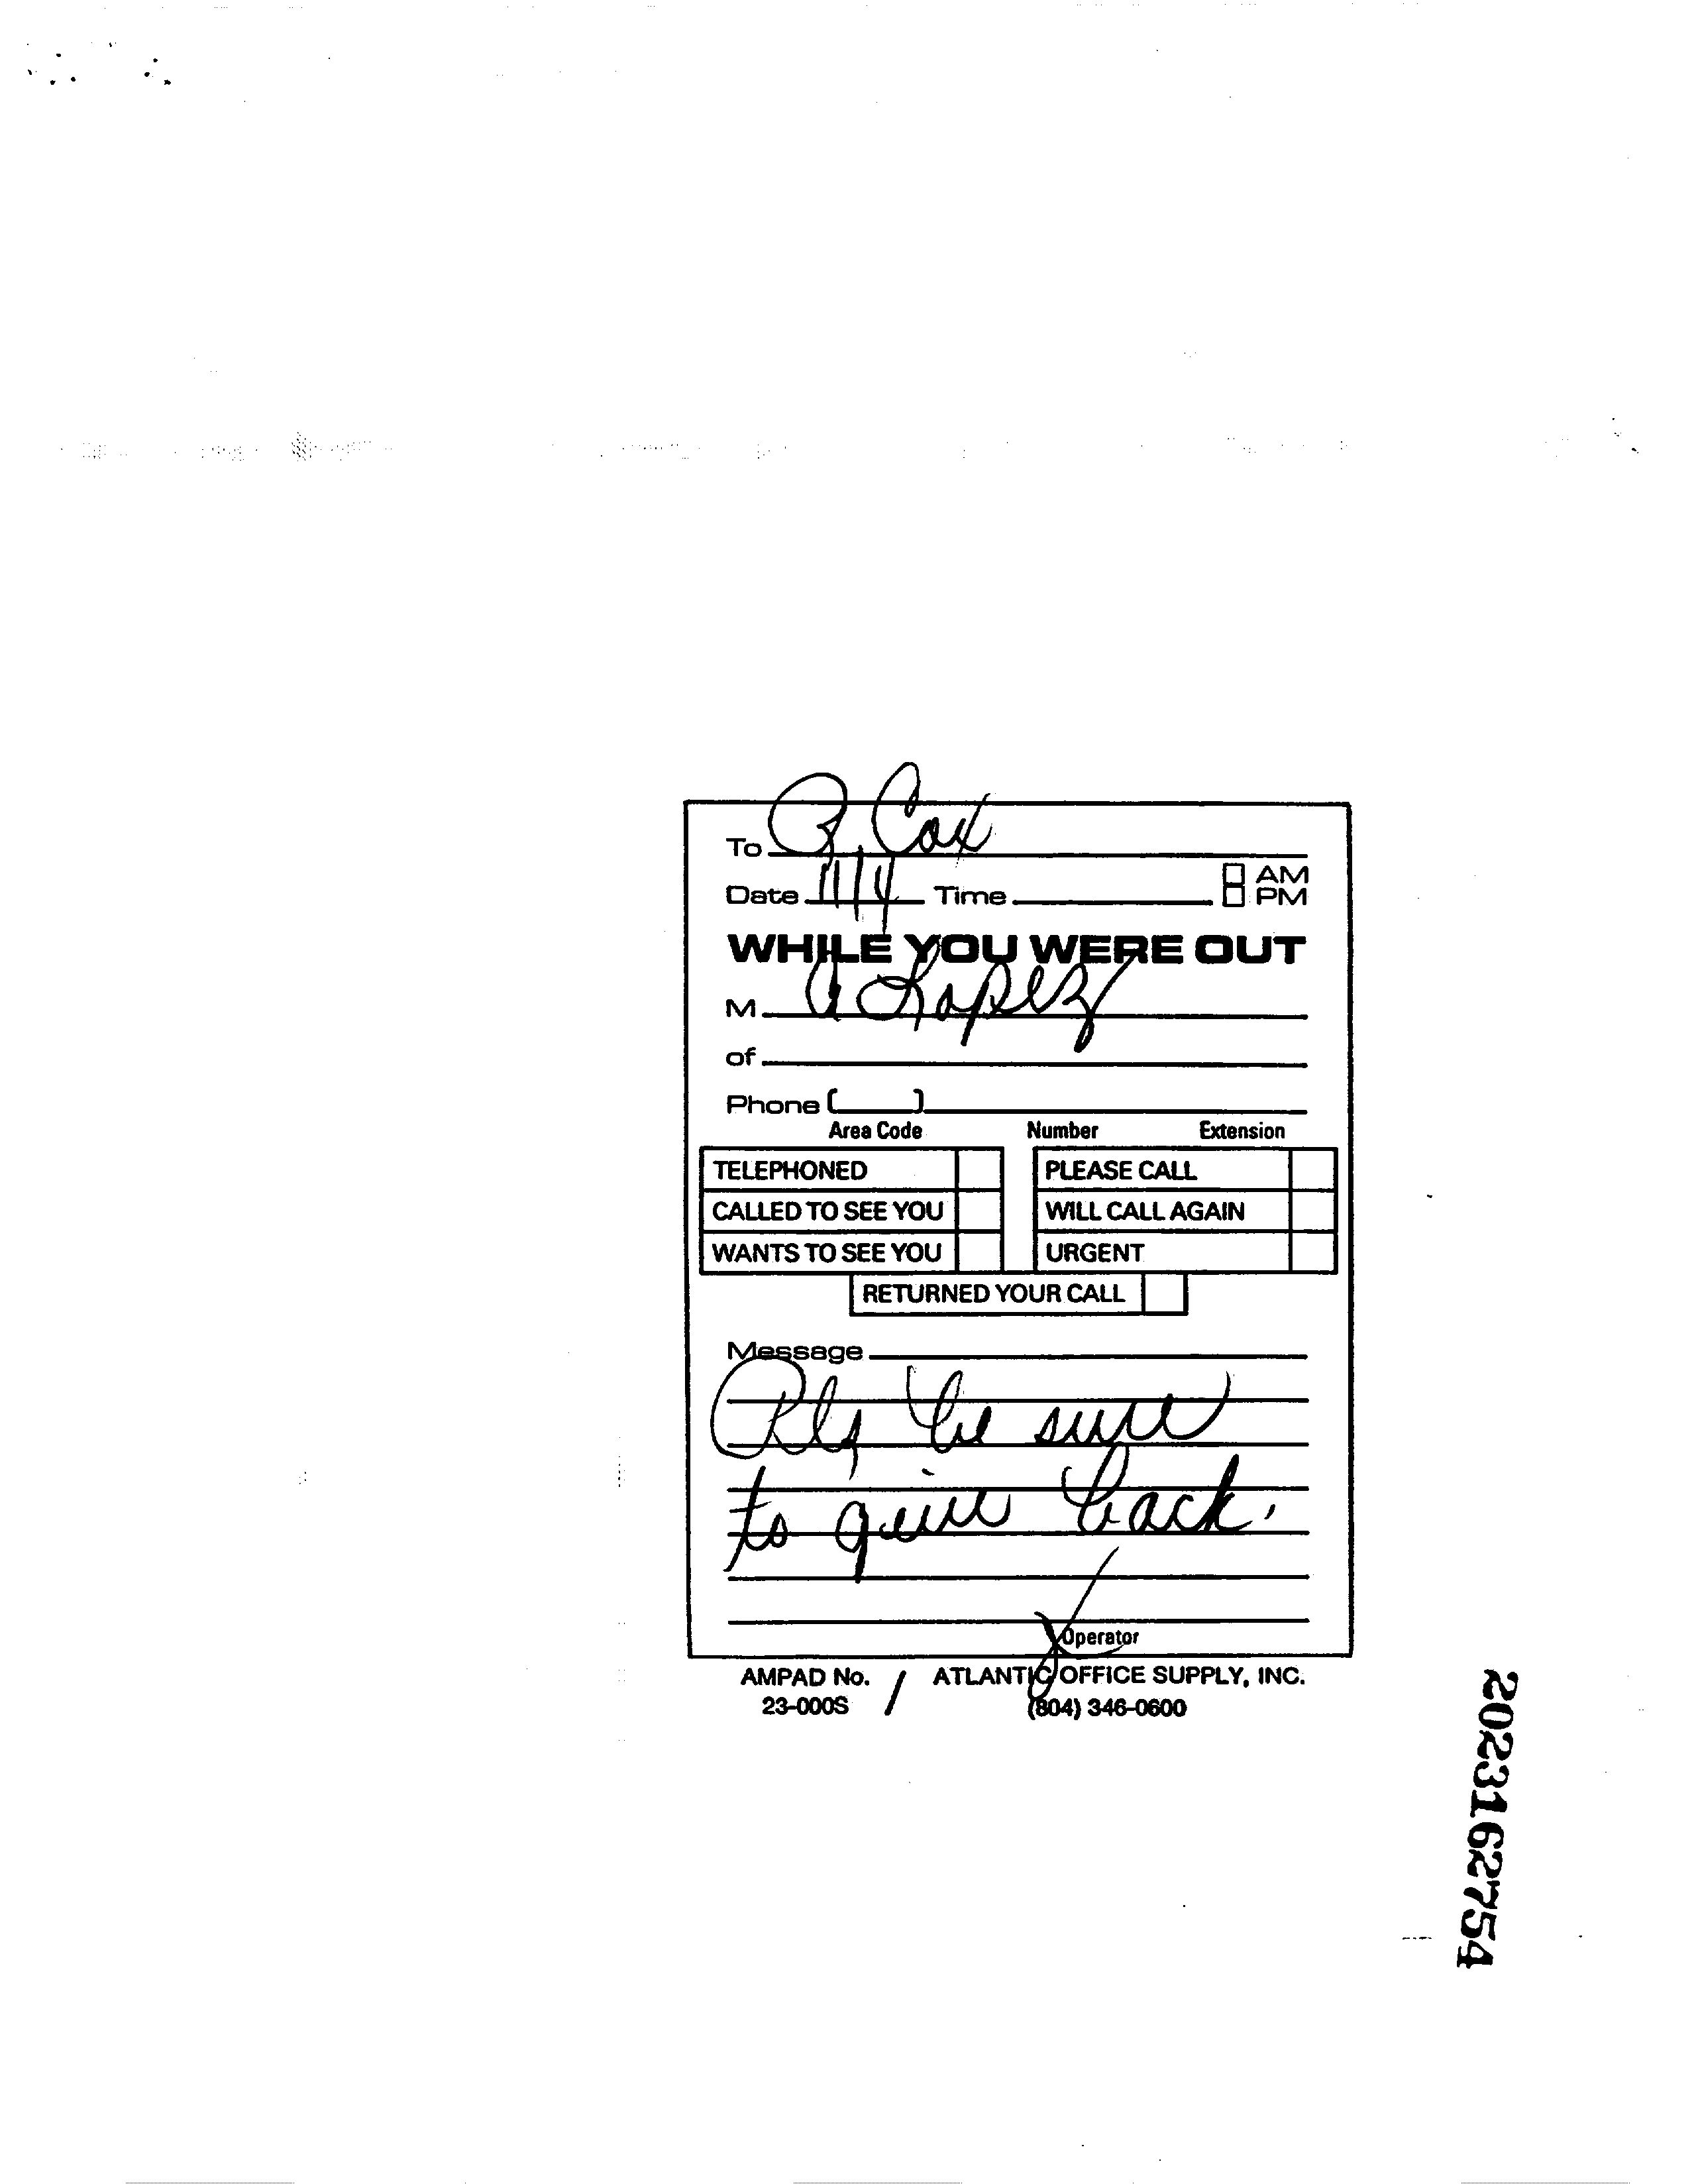 To R Cox
Date 11/4 Time AM
PM
WHILE YOU WERE OUT
M A Lopez
of
Phone ( )
Area Code Number Extension
TELEPHONED PLEASE CALL
CALLED TO SEE YOU WILL CALL AGAIN
WANTS TO SEE YOU URGENT
RETURNED YOUR CALL
Message
Pls be sure
to give back.
Operator
AMPAD No. / ATLANTIC OFFICE SUPPLY, INC.
23-000S (804) 346-0600
2023162754